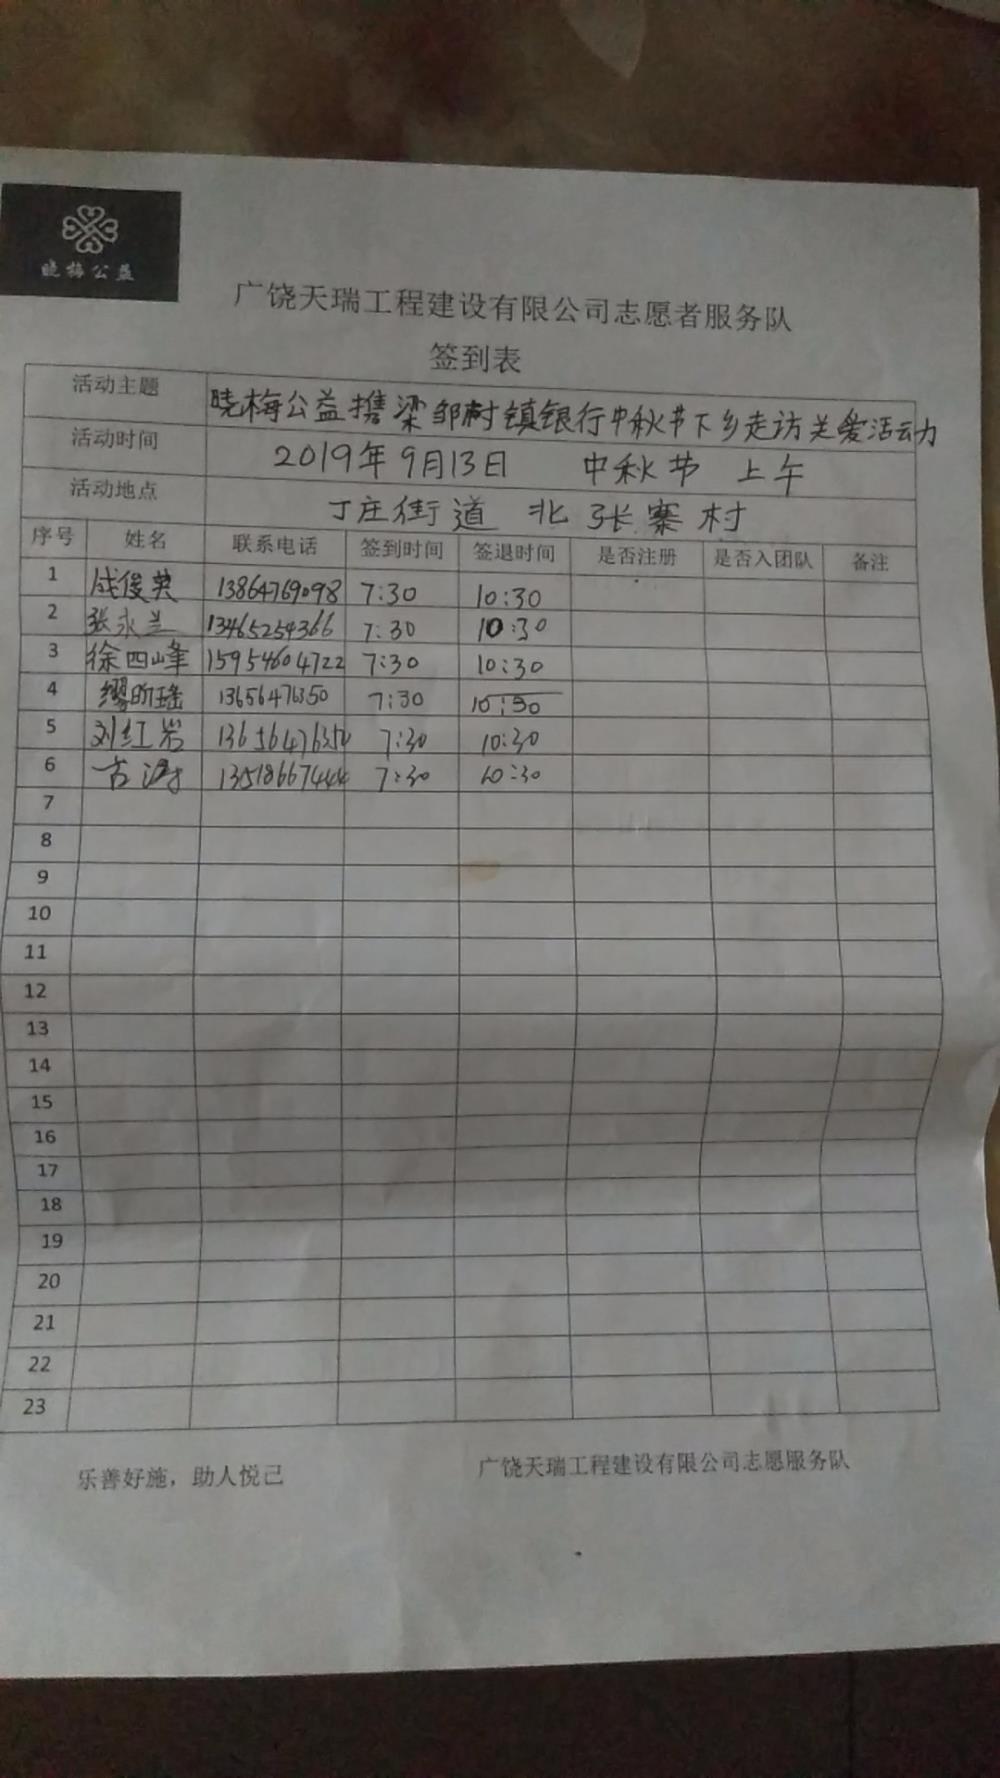 晓梅公益
广饶天瑞工程建设有限公司志愿者服务队
签到表
活动主题 晓梅公益携梁邹村镇银行中秋节下乡走访关爱活动
活动时间 2019年9月13日 中秋节 上午
活动地点 丁庄街道 北张寨村
序号 姓名 联系电话 签到时间 签退时间 是否注册 是否入团队 备注
1 成俊英 13864769098 7:30 10:30
2 张永兰 13465254366 7:30 10:30
3 徐四峰 15954604722 7:30 10:30
4 缪昕瑶 13656476350 7:30 10:30
5 刘红岩 13656476350 7:30 10:30
6 古涛 13518667444 7:30 10:30
7
8
9
10
11
12
13
14
15
16
17
18
19
20
21
22
23
乐善好施，助人悦己 广饶天瑞工程建设有限公司志愿服务队